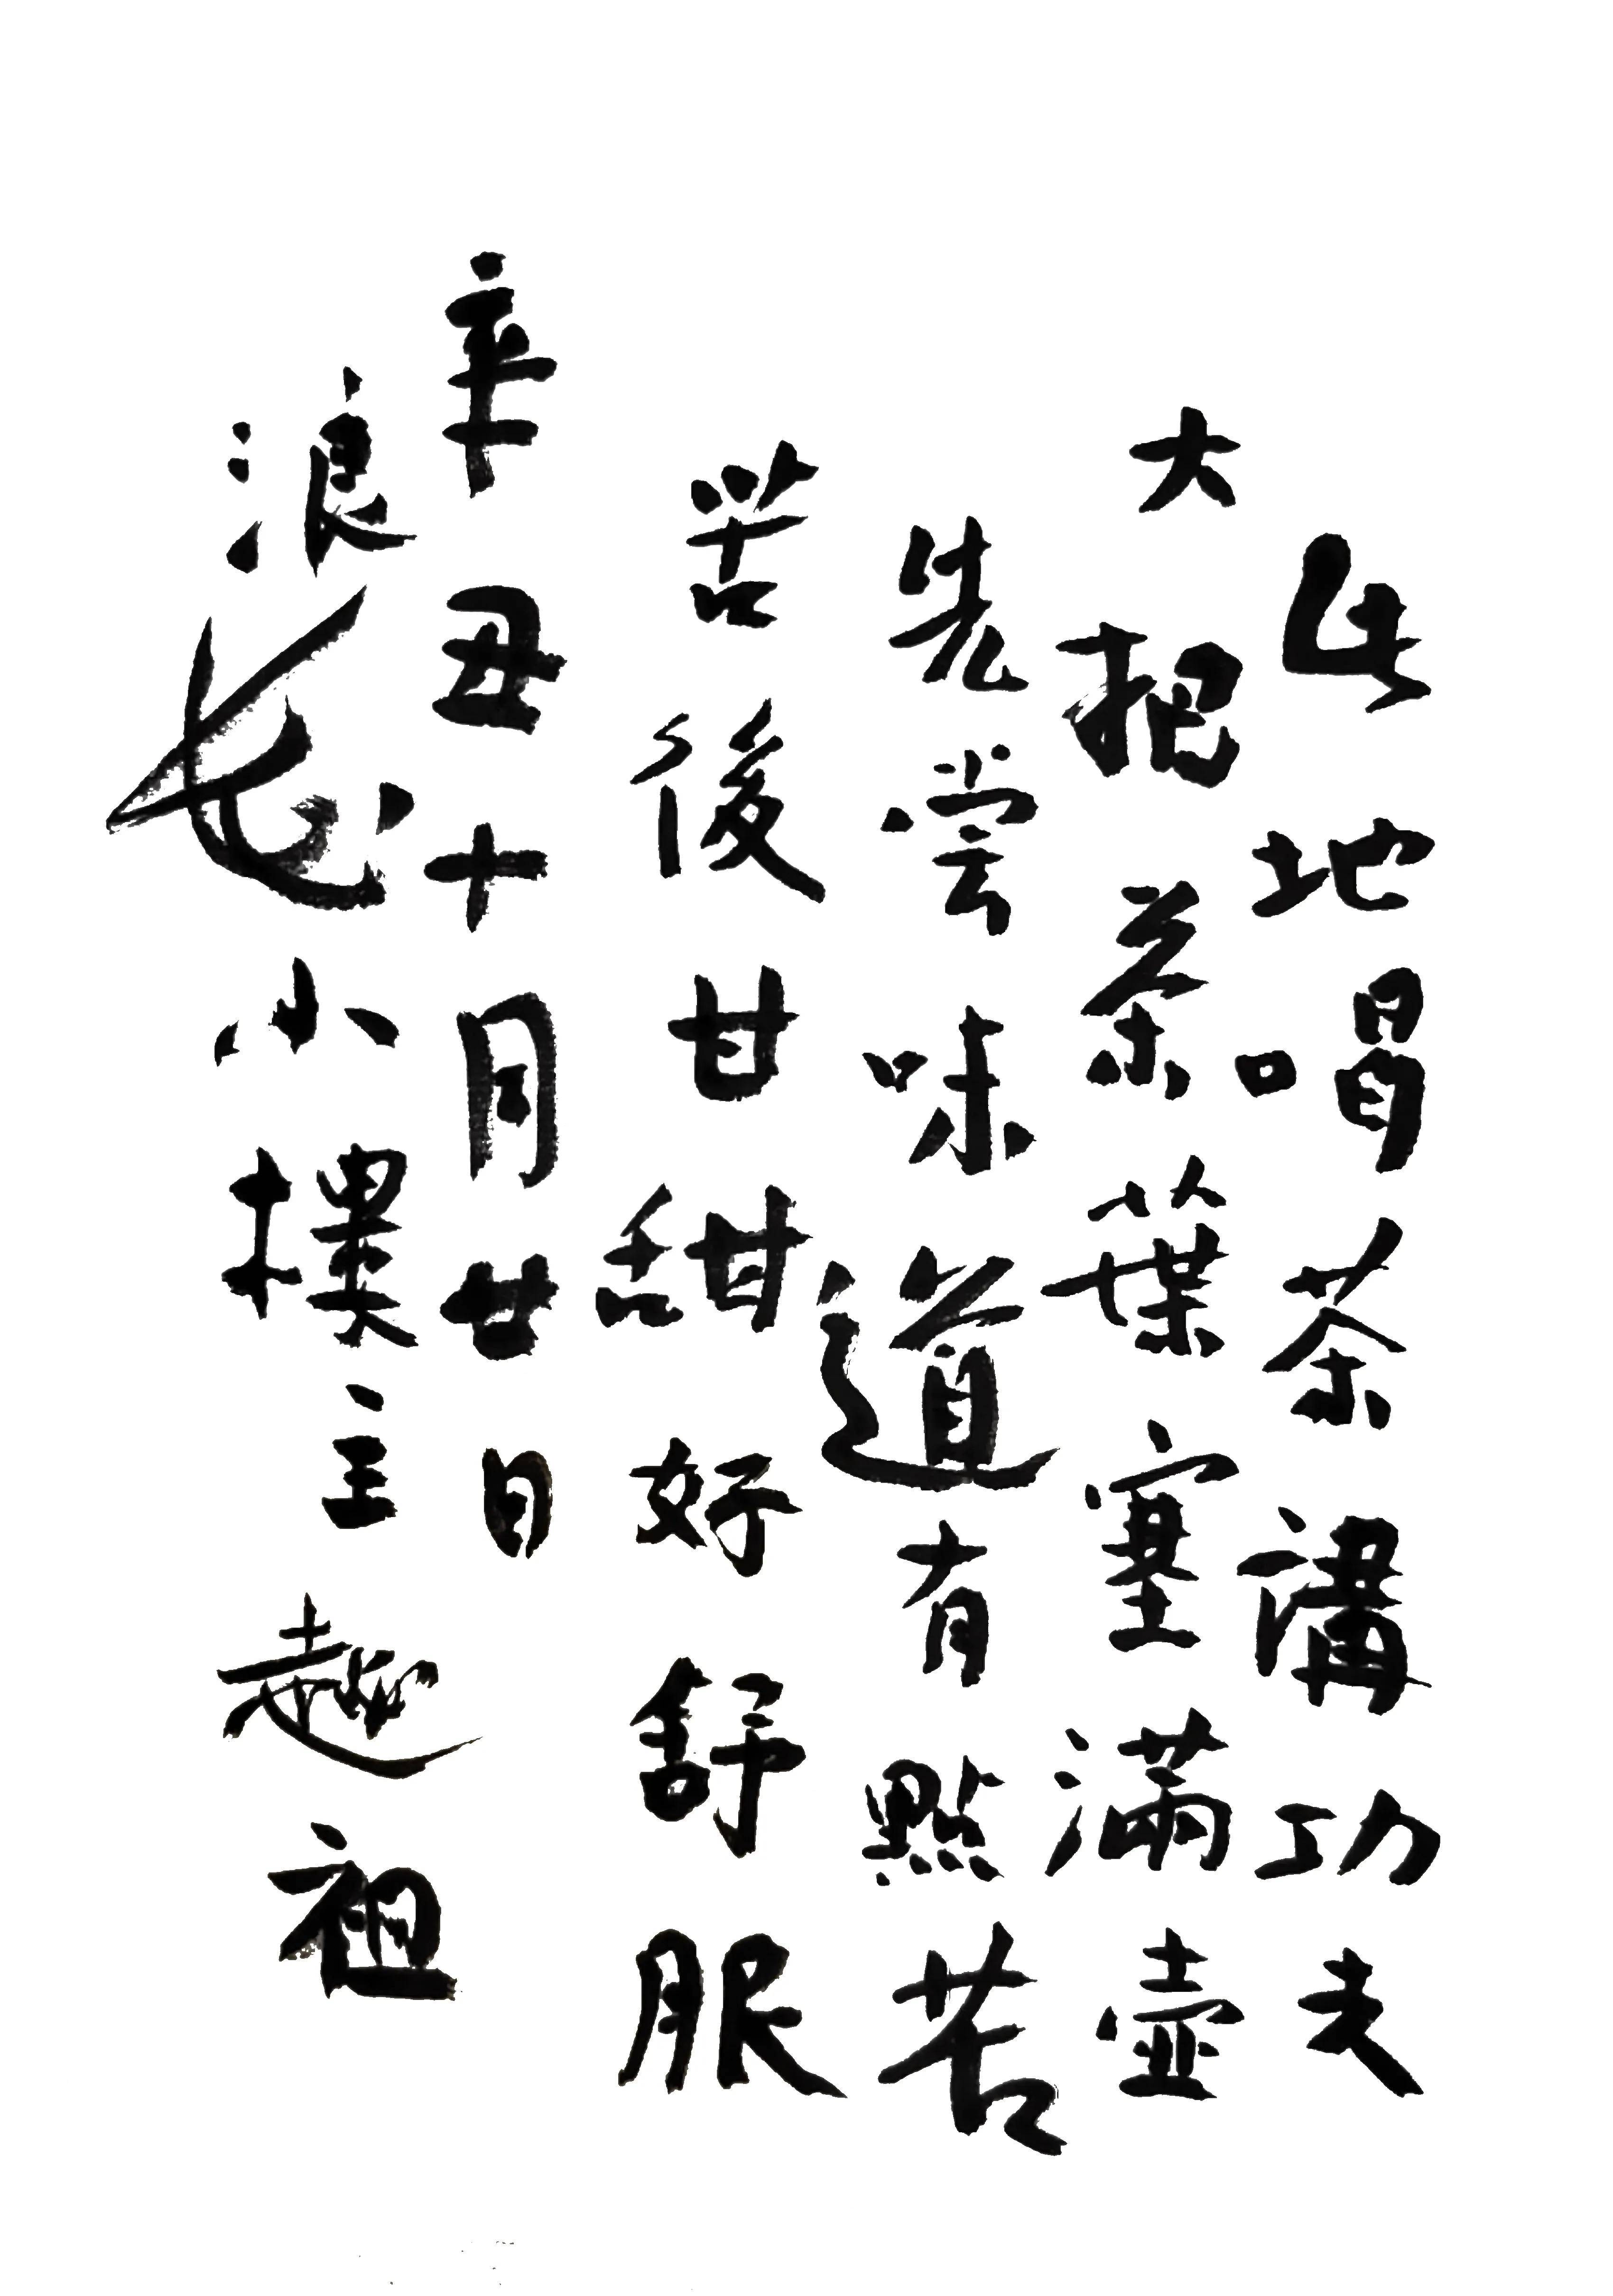 此地喝茶講功夫
大把茶葉塞滿壺
先嘗味道有點苦
苦後甘甜好舒服
辛丑十月廿日
浪花小樓主趙祖